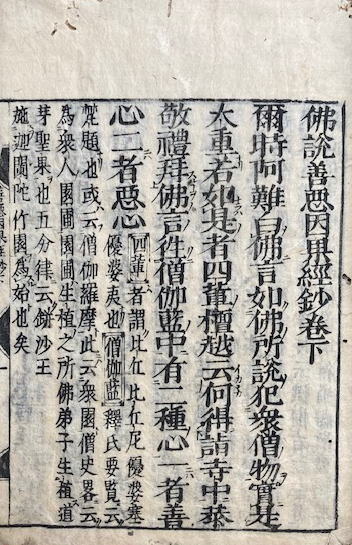 佛說善悪因果經鈔卷下
爾時阿難白佛言如佛所說犯衆僧物實是
太重若如是者四輩檀越云何得詣寺中恭
敬禮拜佛言徃僧伽藍中有二種心一者善
心二者悪心
四輩者謂比丘比丘尼優婆塞
優婆夷也僧伽藍釋氏要覽云
梵題也或云僧伽羅摩此云衆園僧史畧云
為衆人園圃園圃生植之所佛弟子生植道
芽聖果也五分律云缾沙王
施迦蘭陀竹園為始也矣